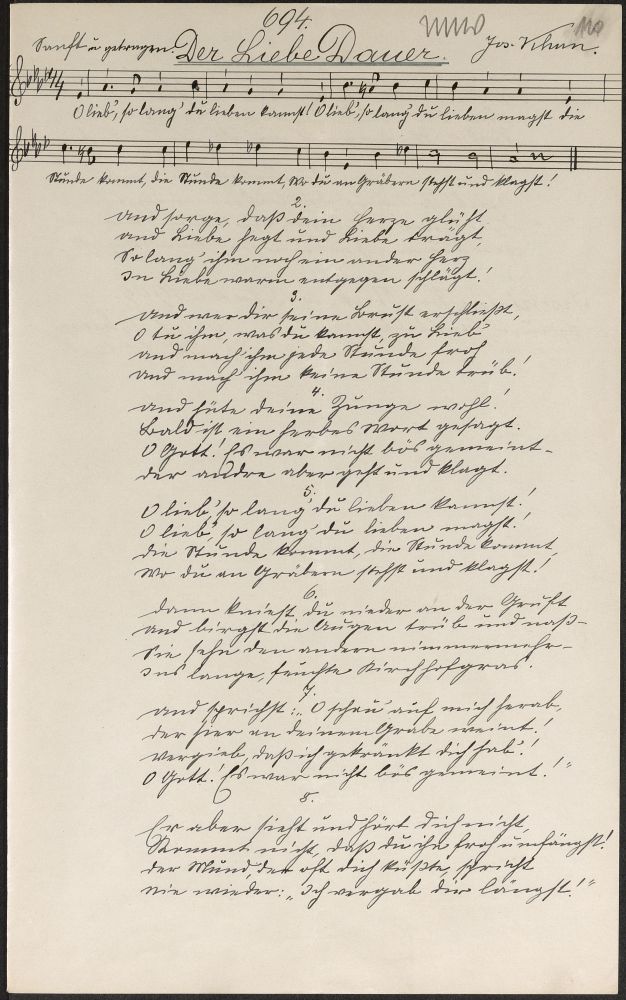 694.
Sanft u getragen. Der Liebe Dauer. Jos.
O lieb', so lang' du lieben kannst! O lieb', so lang' du lieben magst die
Stunde kommt, die Stunde kommt, wo du an Gräbern stehst und klagst!
2.
Und sorge, daß dein Herze glüht
und Liebe hegt und Liebe trägt,
So lang' ihm noch ein ander Herz
In Liebe warm entgegen schlägt!
3.
Und wer dir seine Brust erschließt,
O tu ihm, was du kannst, zu Lieb'
und mach' ihm jede Stunde froh
Und mach' ihm keine Stunde trüb!
4.
Und hüte deine Zunge wohl!
Bald ist ein herbes Wort gesagt.
O Gott! Es war nicht bös gemeint -
der andre aber geht und klagt.
5.
O lieb', so lang' du lieben kannst!
O lieb', so lang' du lieben magst!
die Stunde kommt, die Stunde kommt,
wo du an Gräbern stehst und klagst!
6.
dann kniest du nieder an der Gruft
und birgst die Augen trüb und naß -
Sie sehn den andern nimmermehr -
Ins lange, feuchte Kirchhofgras.
7.
und sprichst: „O schau' auf mich herab,
der hier an deinem Grabe weint!
vergieb, daß ich gekränkt dich hab'!
O Gott! Es war nicht bös gemeint!"
8.
Er aber sieht und hört dich nicht,
Kommt nicht, daß du ihn froh umfängst!
der Mund, der oft dich küßte, spricht
nie wieder: „Ich vergab dir längst!"